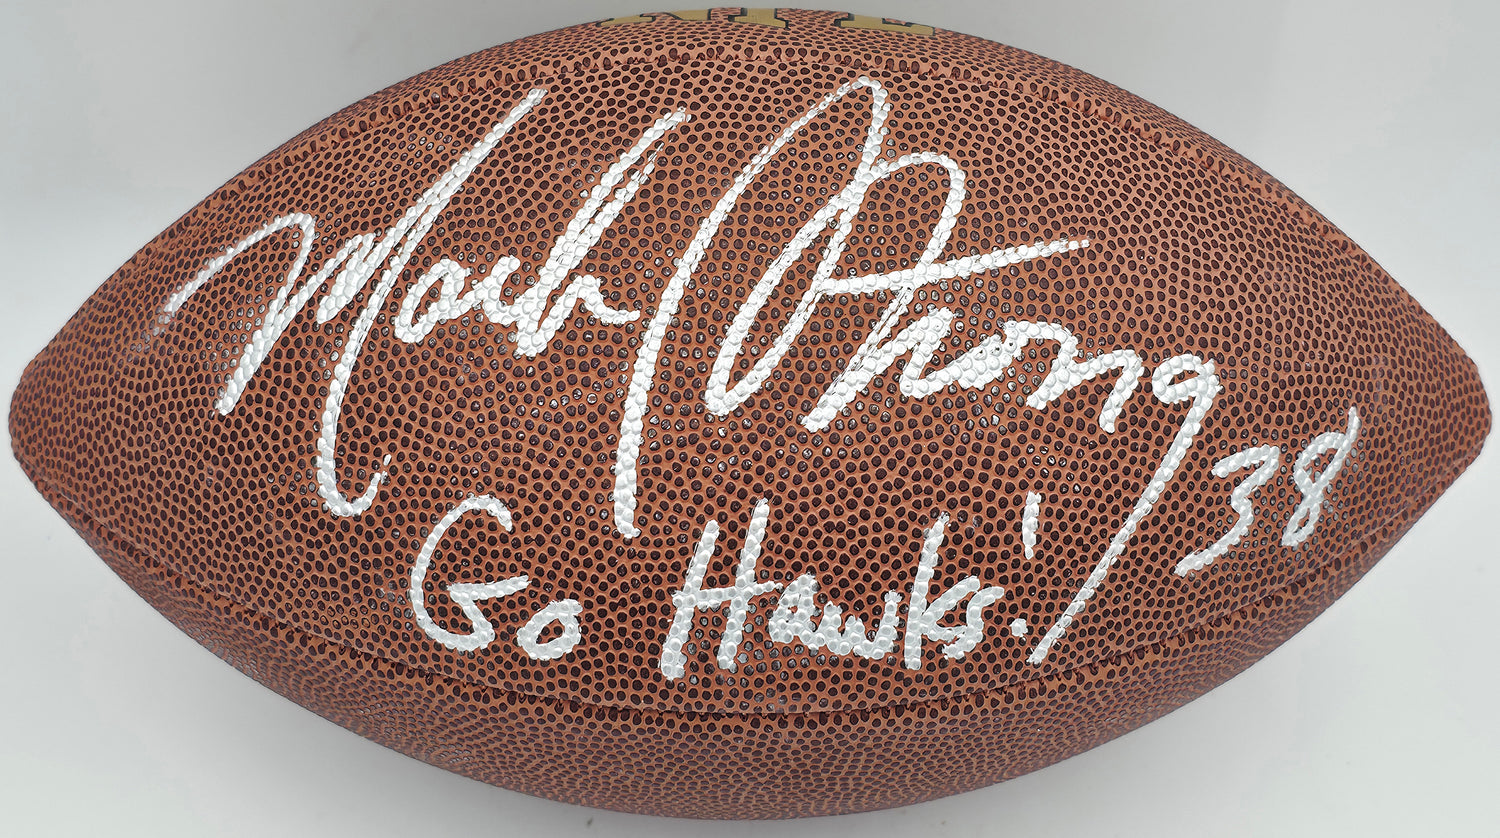 NFL
Mack Strong 38
Go Hawks!